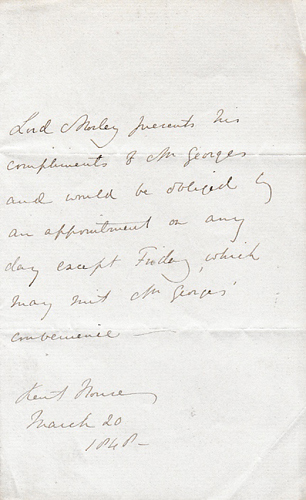 Lord Morley presents his
compliments to Mr Georges
and would be obliged by
an appointment on any
day except Friday, which
may suit Mr Georges'
convenience —
Kent House
March 20
1848 —